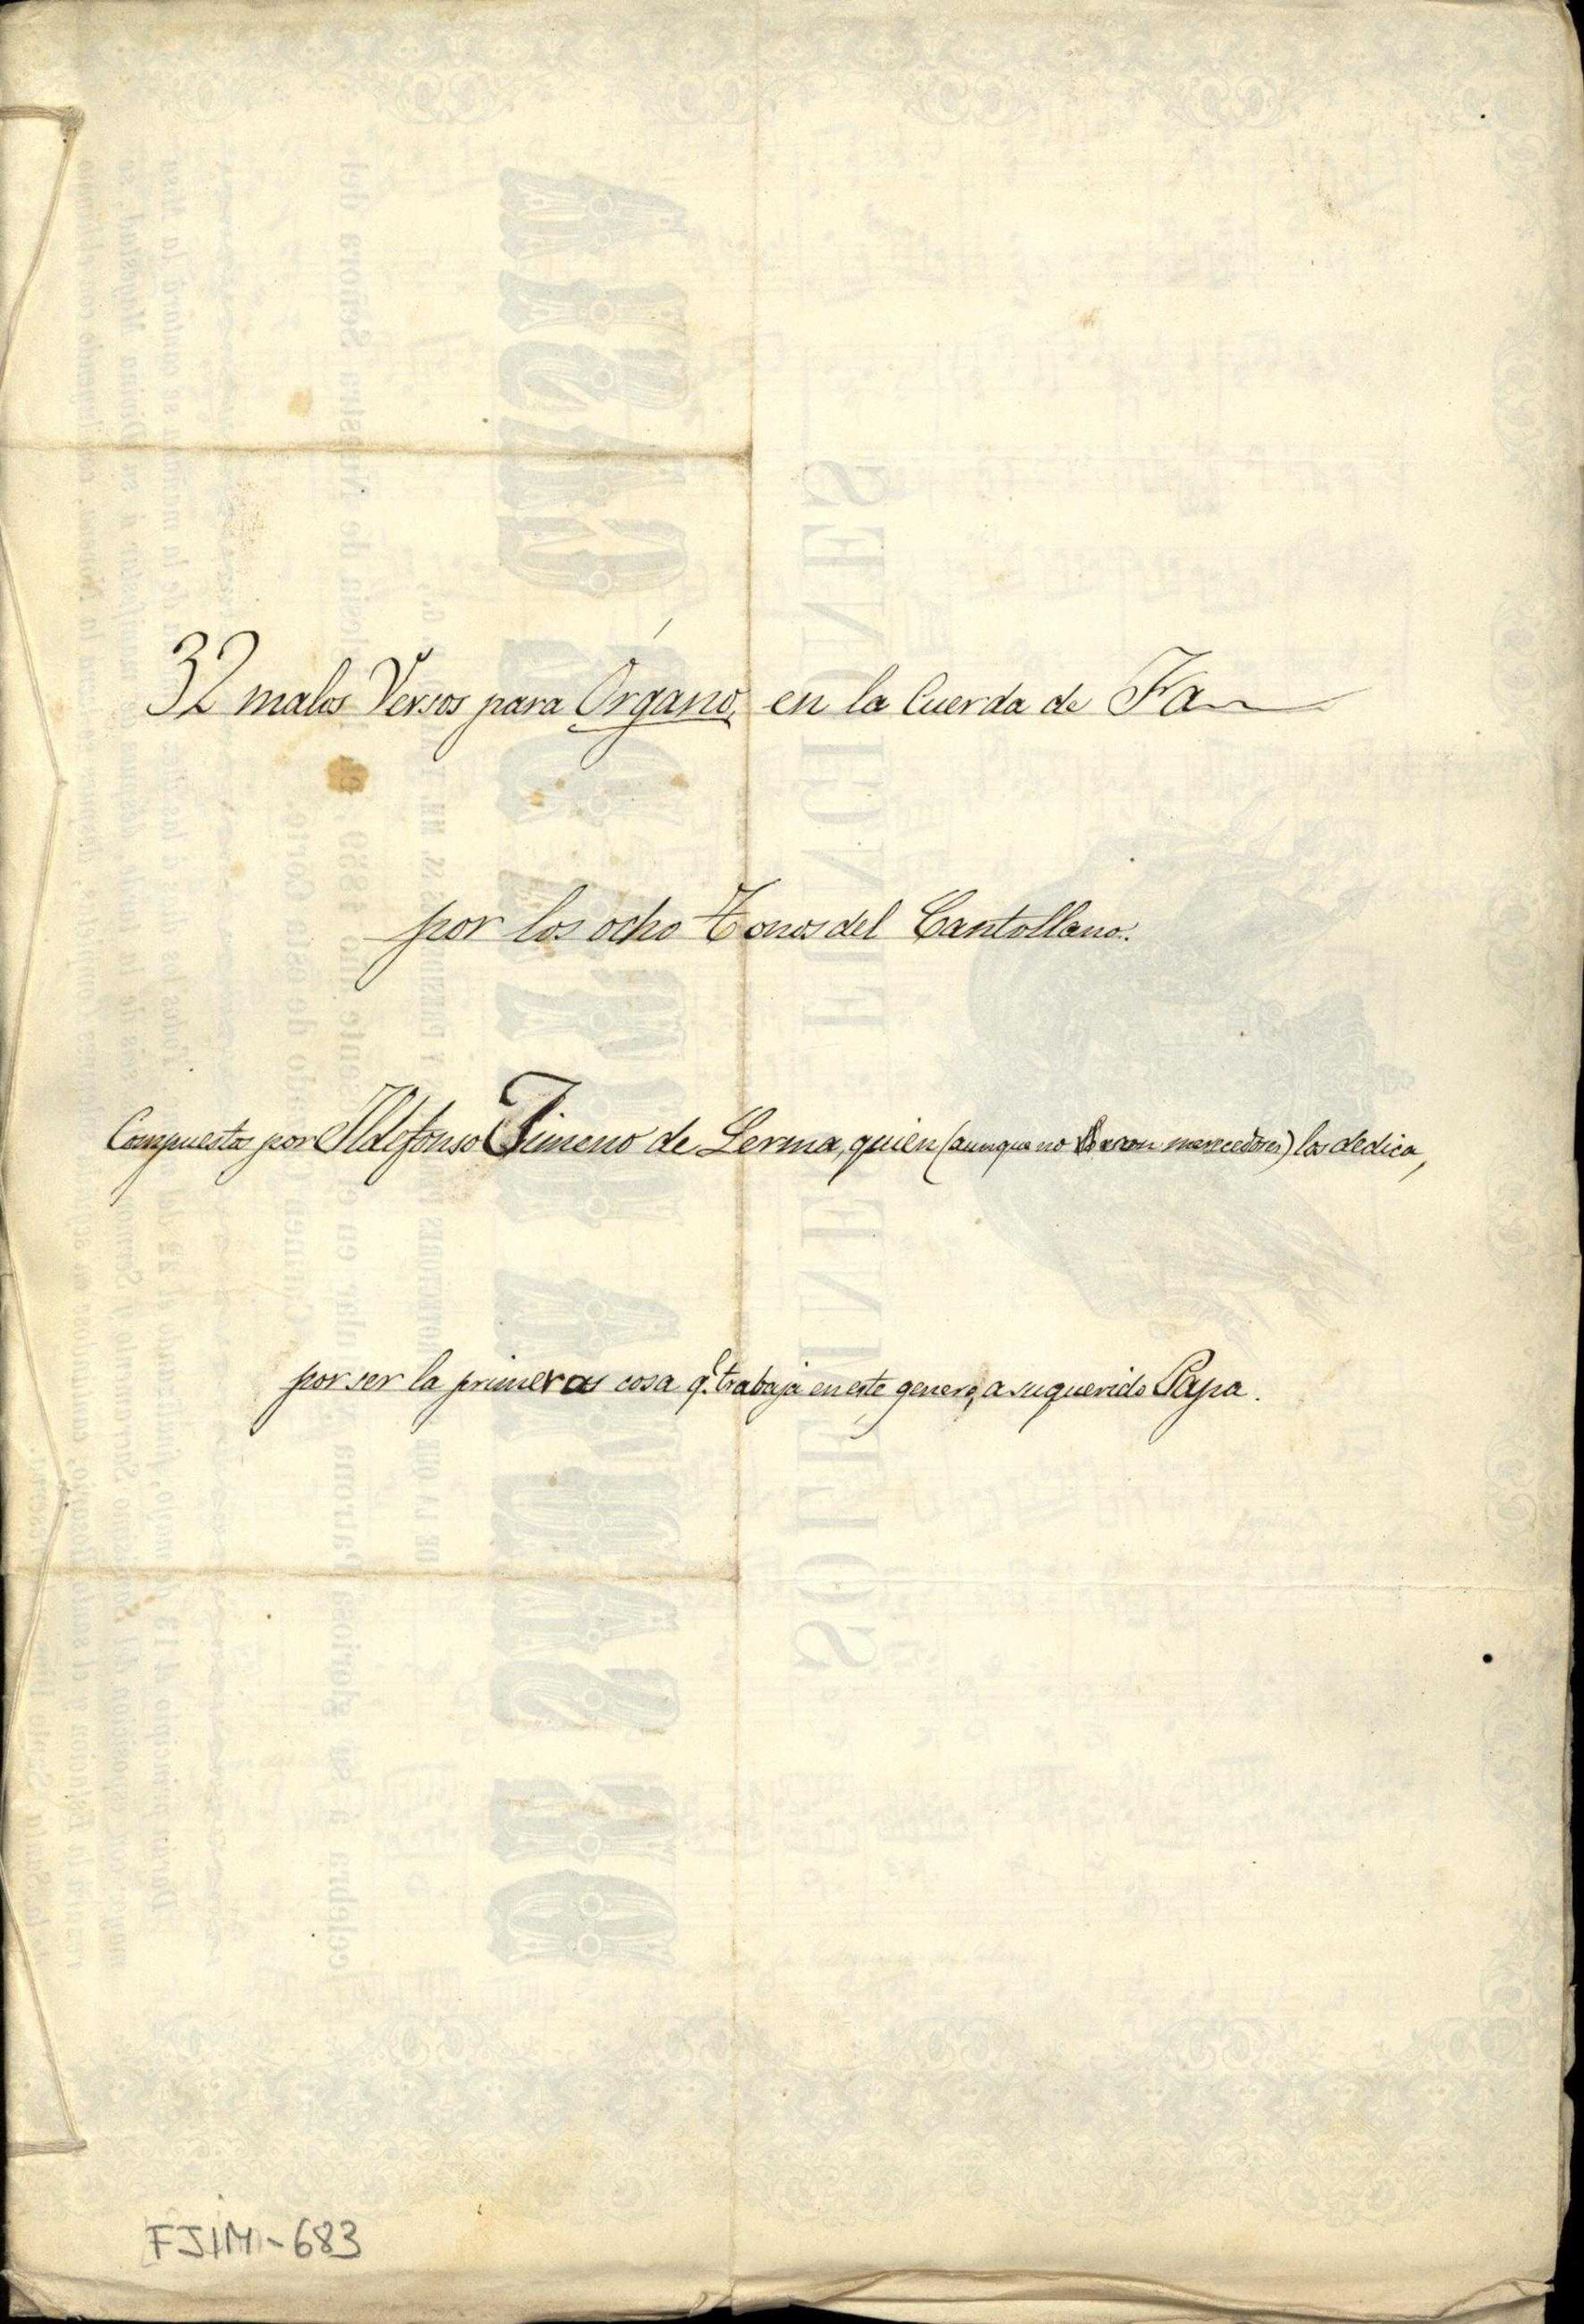 32 malos Versos para Organo, en la Cuerda de Fa
por los ocho Tonos del Cantollano.
Compuestos por Ildefonso Jimeno de Lerma, quien (aunque no son merecedores) los dedica,
por ser la primera cosa q.e trabaja en este genero, a su querido Papa.
FJIM-683